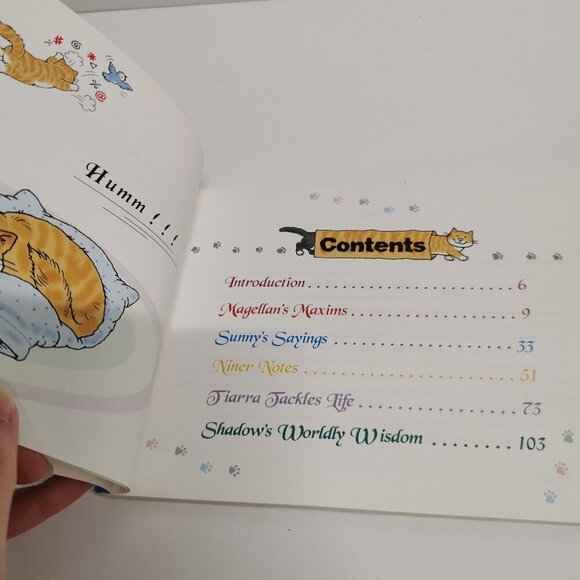 Humm!!!
Contents
Introduction . . . . . . . . . . . . . . . . . . . . . . . . . 6
Magellan's Maxims . . . . . . . . . . . . . . . . . . . . 9
Sunny's Sayings . . . . . . . . . . . . . . . . . . . . . . 33
Niner Notes . . . . . . . . . . . . . . . . . . . . . . . . . 51
Tiarra Tackles Life . . . . . . . . . . . . . . . . . . . 73
Shadow's Worldly Wisdom . . . . . . . . 103